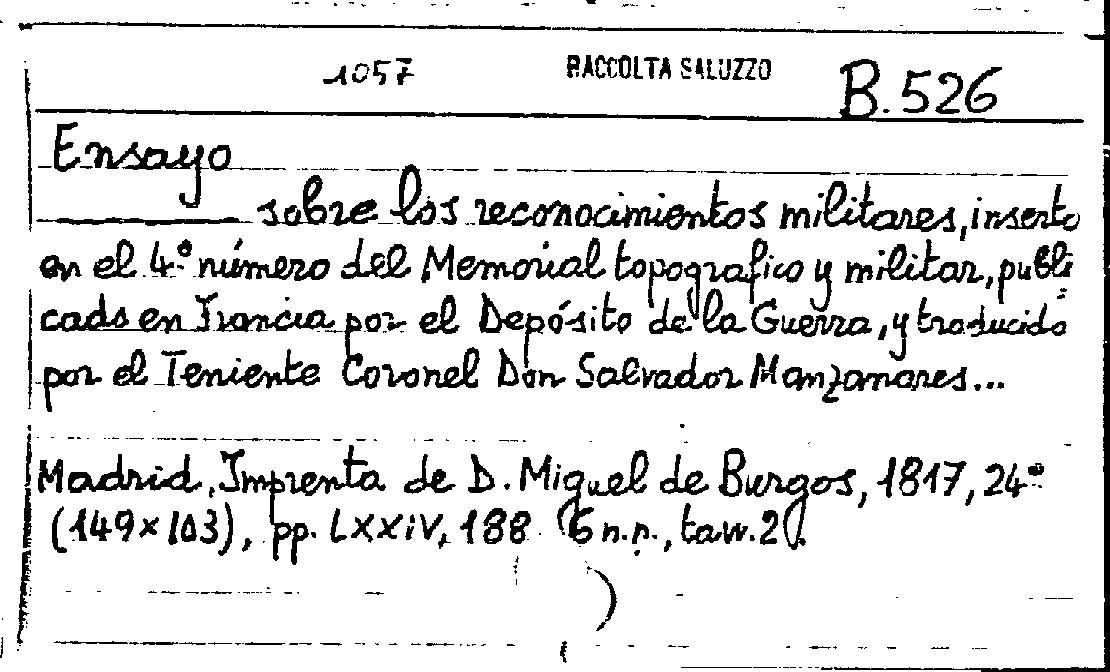 1057 RACCOLTA SALUZZO B.526
Ensayo
sobre los reconocimientos militares, inserto
en el 4.º número del Memorial topografico y militar, publi
cado en Francia por el Depósito de la Guerra, y traducido
por el Teniente Coronel Don Salvador Manzanares...
Madrid, Imprenta de D. Miguel de Burgos, 1817, 24º
(149x103), pp. LXXIV, 188 6 n.n., tav. 2.